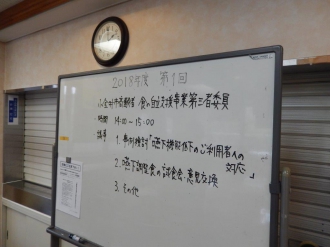 2018年度 第1回
小金井市高齢者 食の自立支援事業第三者委員
時間 14:00-15:00
議事 1. 事例検討「嚥下機能低下のご利用者への
対応」
2. 嚥下調整食の試食会・意見交換
3. その他